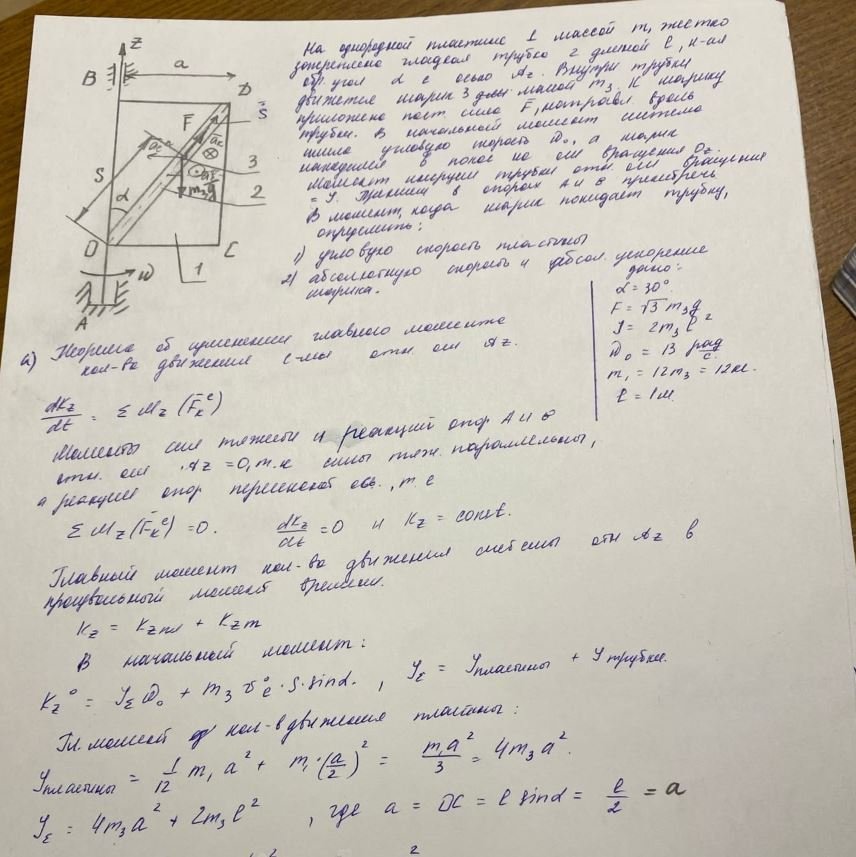 На однородной пластине 1 массой m₁ жестко
закреплена гладкая трубка 2 длиной ℓ, к-ая
обр. угол α с осью Az. Внутри трубки
движется шарик 3 массой m₃. К шарику
приложена пост. сила F̄, направл. вдоль
трубки. В начальный момент система
имела угловую скорость ω₀, а шарик
находился в покое на оси вращения
Момент инерции трубки отн. оси вращения
= J. Трением в опорах A и B пренебречь
В момент, когда шарик покидает трубку,
определить:
1) угловую скорость пластины
2) абсолютную скорость и абсол. ускорение
шарика.
z
B
a
D
s̄
F̄
S
α
3
2
m₃g
O
C
1
ω
A
дано:
α = 30°
F = √3 m₃g
J = 2m₃ℓ²
ω₀ = 13 рад/с
m₁ = 12m₃ = 12кг.
ℓ = 1м.
а) Теорема об изменении главного момента
кол-ва движения с-мы отн. оси Az.
dKz/dt = Σ Mz (F̄ₖᵉ)
Моменты сил тяжести и реакций опор A и B
отн. оси Az = 0, т.к силы тяж. параллельны,
а реакции опор пересекают ось, т. е
Σ Mz (F̄ₖᵉ) = 0. dKz/dt = 0 и Kz = const.
Главный момент кол-ва движения системы отн Az в
произвольный момент времени.
Kz = Kzпл + Kzт
В начальный момент:
Kz° = J_Σ ω₀ + m₃ v°ₑ · S · sinα. , J_Σ = Jпластины + Jтрубки.
Гл. момент кол-в движения пластины:
Jпластины = 1/12 m₁ a² + m₁·(a/2)² = m₁a²/3 = 4m₃a².
J_Σ = 4m₃a² + 2m₃ℓ² , где a = OC = ℓ sinα = ℓ/2 = a